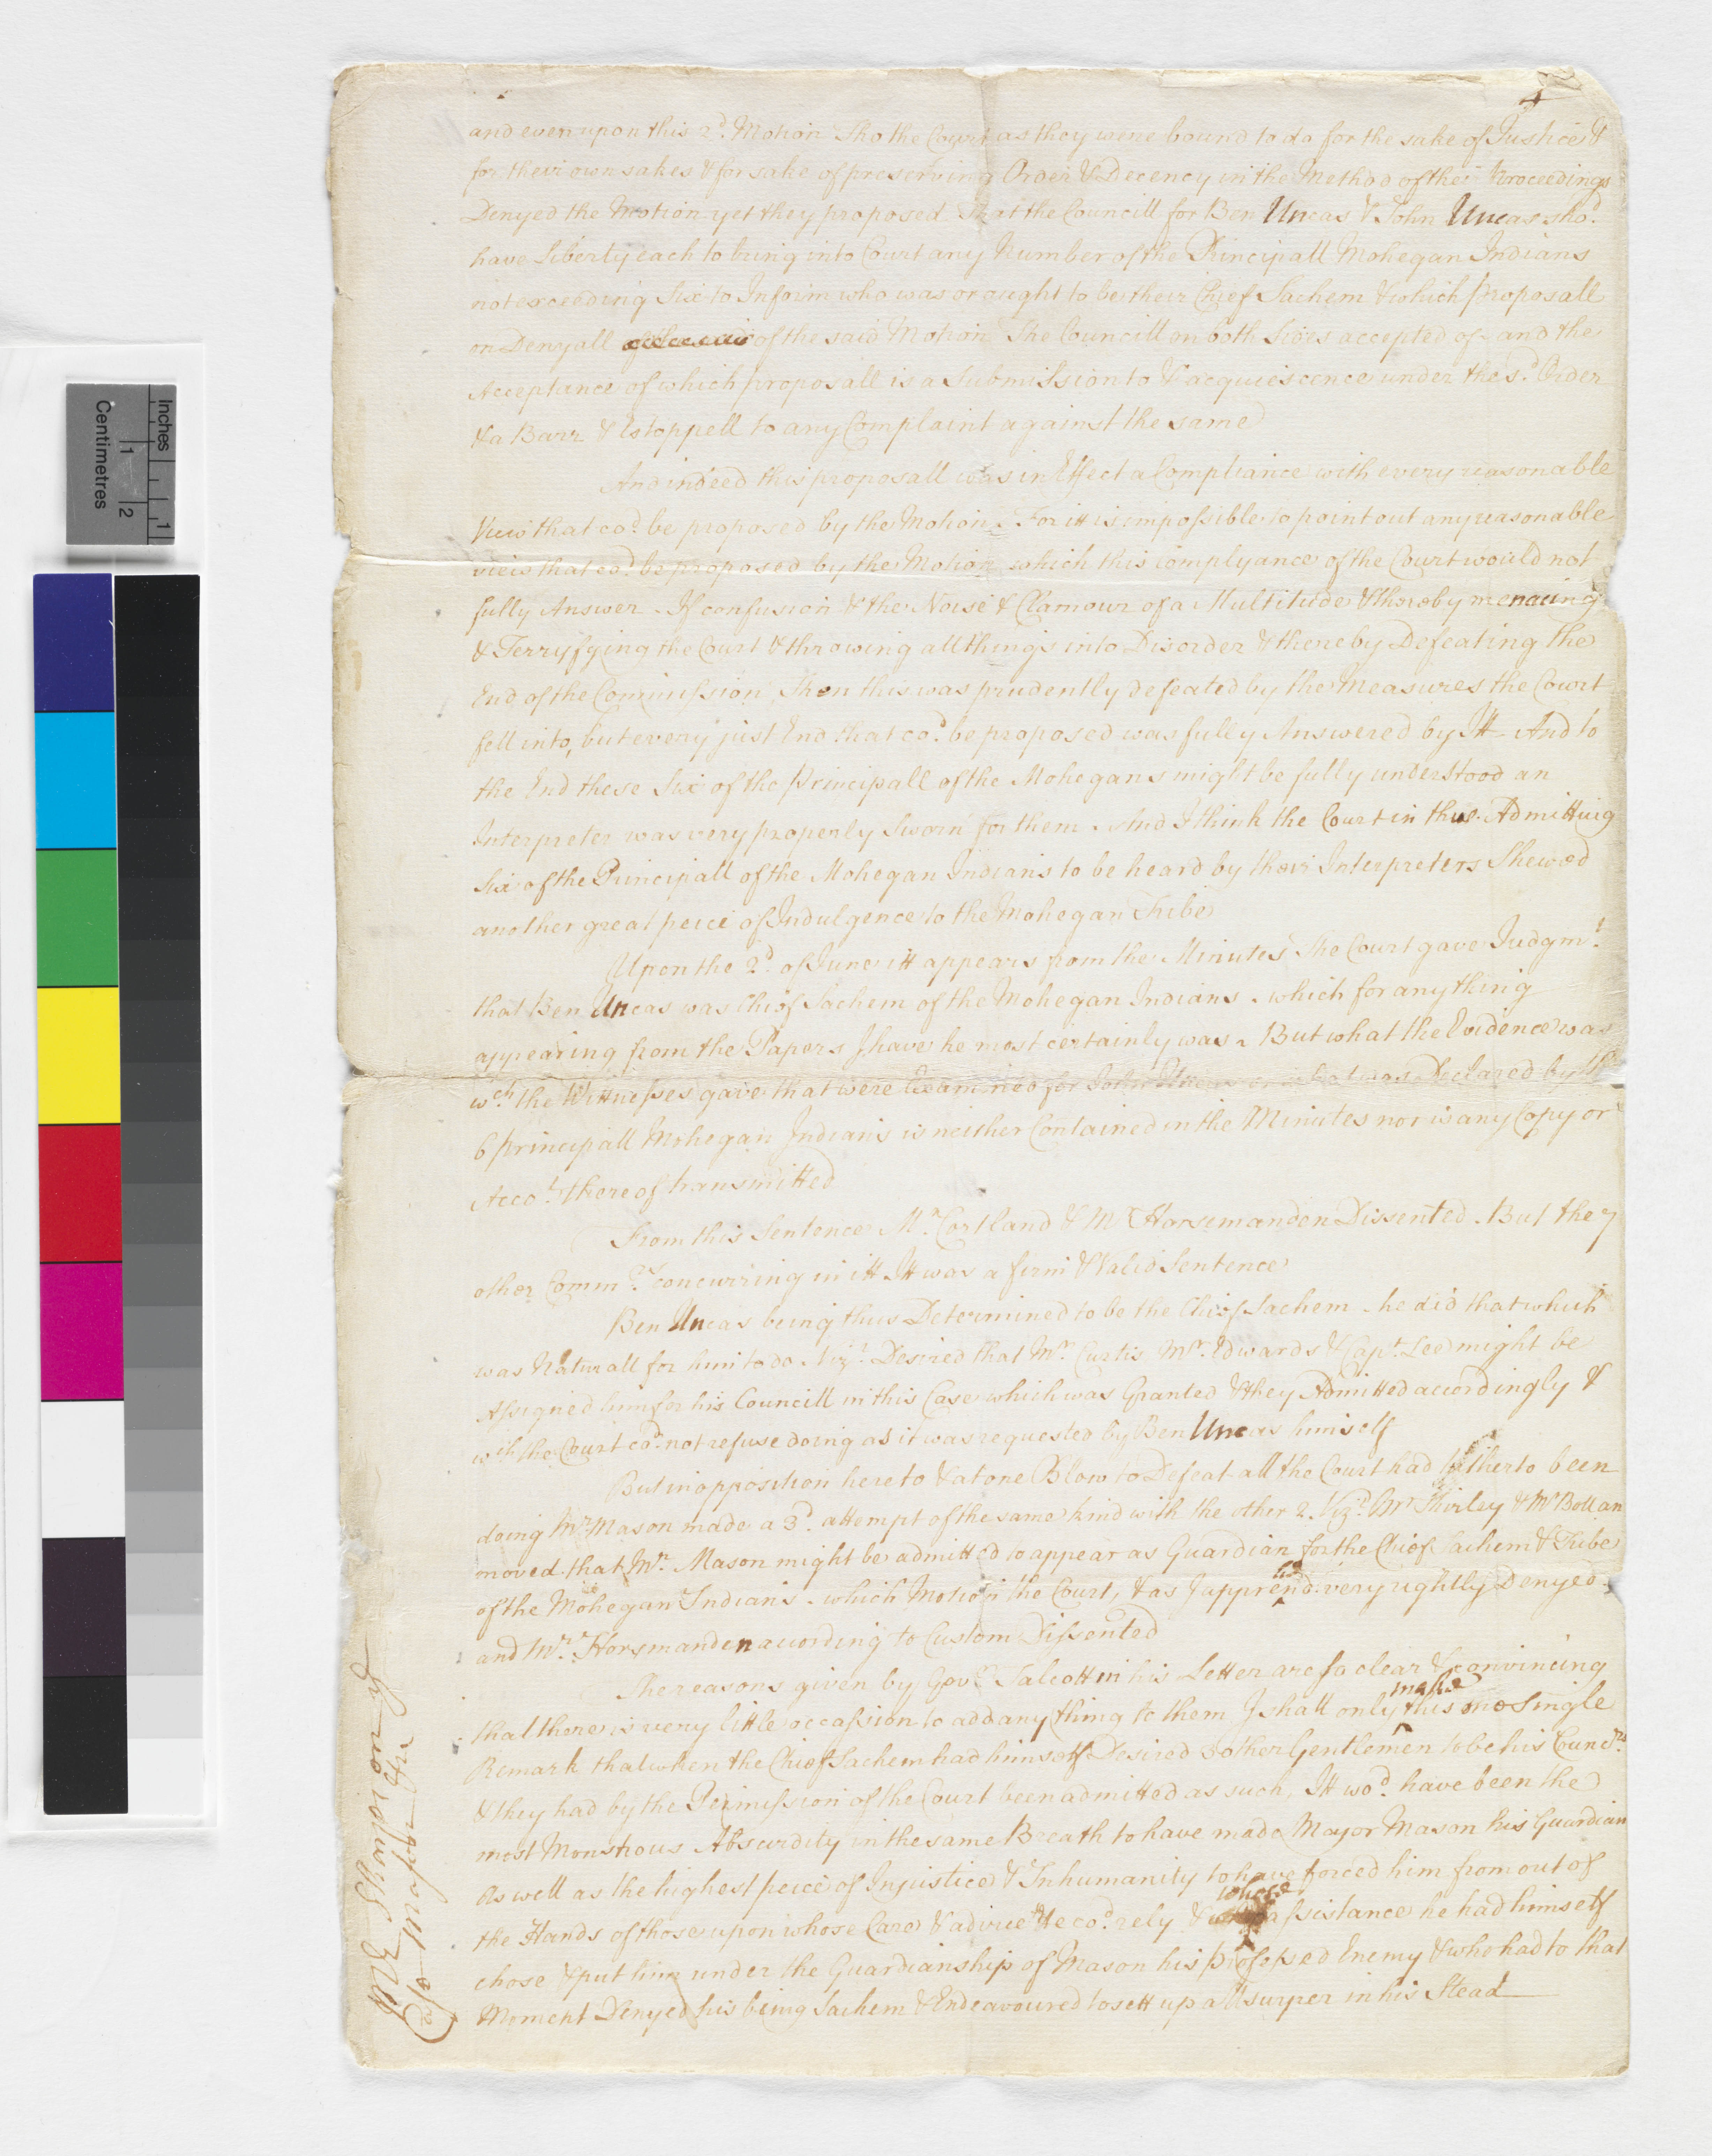 4
and even upon this 2d. Motion Tho the Court as they were bound to do for the sake of Justice &
for their own sakes & for sake of preserving Order & Decency in the Method of their Proceedings
Denyed the Motion yet they proposed That the Councill for Ben Uncas & John Uncas shod.
have Liberty each to bring into Court any Number of the Principall Mohegan Indians
not exceeding Six to Inform who was or ought to be their Chief Sachem & which proposall
on Denyall of the said Motion The Councill on both Sides accepted of and the
Acceptance of which proposall is a Submission to & acquiescence under the sd. Order
& a Barr & Estoppell to any Complaint against the same
And indeed this proposall was in Effect a Compliance with every reasonable
View that cod. be proposed by the Motion. For itt is impossible to point out any reasonable
view that cod. be proposed by the Motion which this complyance of the Court would not
fully Answer. If confusion & the Noise & Clamour of a Multitude & thereby menacing
& Terryfying the Court & throwing all things into Disorder & thereby Defeating the
End of the Commission, Then this was prudently defeated by the Measures the Court
fell into, but every just End that cod. be proposed was fully Answered by Itt And to
the End these Six of the Principall of the Mohegans might be fully understood an
Interpreter was very properly Sworn for them. And I think the Court in thus Admitting
Six of the Principall of the Mohegan Indians to be heard by their Interpreters Shewed
another great peice of Indulgence to the Mohegan Tribe
Upon the 2d. of June itt appears from the Minutes The Court gave Judgmt.
that Ben Uncas was Chief Sachem of the Mohegan Indians. which for any thing
appearing from the Papers I have he most certainly was. But what the Evidence was
wch. the Wittnesses gave that were Examined for John Uncas or what was Declared by the
6 principall Mohegan Indians is neither Contained in the Minutes nor is any Copy or
Accot. thereof transmitted
From this Sentence Mr. Cortland & Mr Horsemanden Dissented. But the 7
other Commrs. concurring in itt Itt was a firm & Valid Sentence
Ben Uncas being thus Determined to be the Chief Sachem. he did that which
was Naturall for him to do. Vizt. Desired that Mr. Curtis Mr. Edwards & Capt. Lee might be
Assigned him for his Councill in this Case which was Granted & they Admitted accordingly &
wch the Court cod. not refuse doing as it was requested by Ben Uncas himself
But in opposition hereto & at one Blow to Defeat all the Court had hitherto been
doing Mr. Mason made a 3d. attempt of the same kind with the other 2. Vizt. Mr Shirley & Mr Bollan
moved that Mr. Mason might be admitted to appear as Guardian for the Chief Sachem & Tribe
of the Mohegan Indians. which Motion the Court, & as I apprehend very rightly Denyed
and Mr. Horsmanden according to Custom Dissented
The reasons given by Govr. Talcott in his Letter are so clear & convincing
that there is very little occasion to add any thing to them I shall only make this one Single
Remark that when the Chief Sachem had himself Desired 3 other Gentlemen to be his Councrs.
& they had by the Permission of the Court been admitted as such, Itt wod. have been the
most Monstrous Absurdity in the same Breath to have made Mayor Mason his Guardian
As well as the highest peice of Injustice & Inhumanity to have forced him from out of
the Hands of those upon whose Care & advice He cod. rely & whose assistance he had himself
chose & put him under the Guardianship of Mason his professed Enemy & who had to that
Moment Denyed his being Sachem & Endeavoured to sett up a Usurper in his Stead